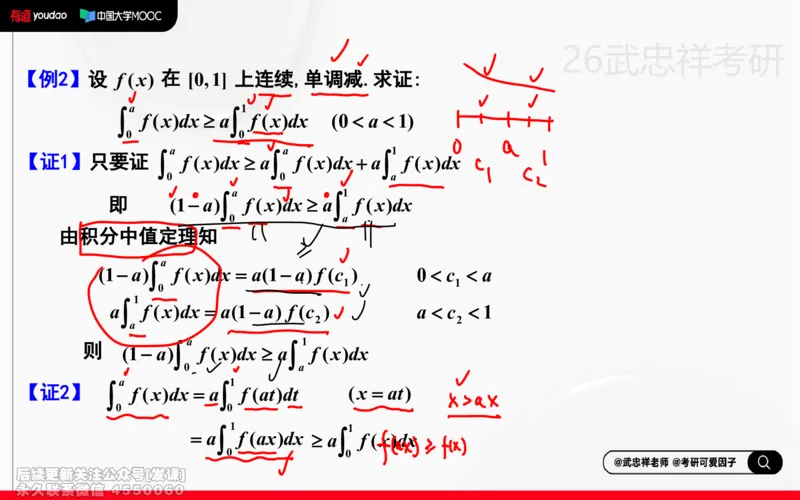 有道 youdao 中国大学MOOC
26武忠祥考研
【例2】设 f(x) 在 [0,1] 上连续,单调减.求证:
∫₀ᵃ f(x)dx ≥ a∫₀¹ f(x)dx (0 < a < 1)
【证1】只要证 ∫₀ᵃ f(x)dx ≥ a∫₀ᵃ f(x)dx + a∫ₐ¹ f(x)dx
0 a 1
c₁ c₂
即 (1−a)∫₀ᵃ f(x)dx ≥ a∫ₐ¹ f(x)dx
由积分中值定理知
(1−a)∫₀ᵃ f(x)dx = a(1−a)f(c₁) 0 < c₁ < a
a∫ₐ¹ f(x)dx = a(1−a)f(c₂) a < c₂ < 1
则 (1−a)∫₀ᵃ f(x)dx ≥ a∫ₐ¹ f(x)dx
【证2】 ∫₀ᵃ f(x)dx = a∫₀¹ f(at)dt (x = at) x>ax
= a∫₀¹ f(ax)dx ≥ a∫₀¹ f(x)dx f(ax) ≥ f(x)
@武忠祥老师 @考研可爱因子
后续更新关注公众号[发课]
永久联系微信 4550060